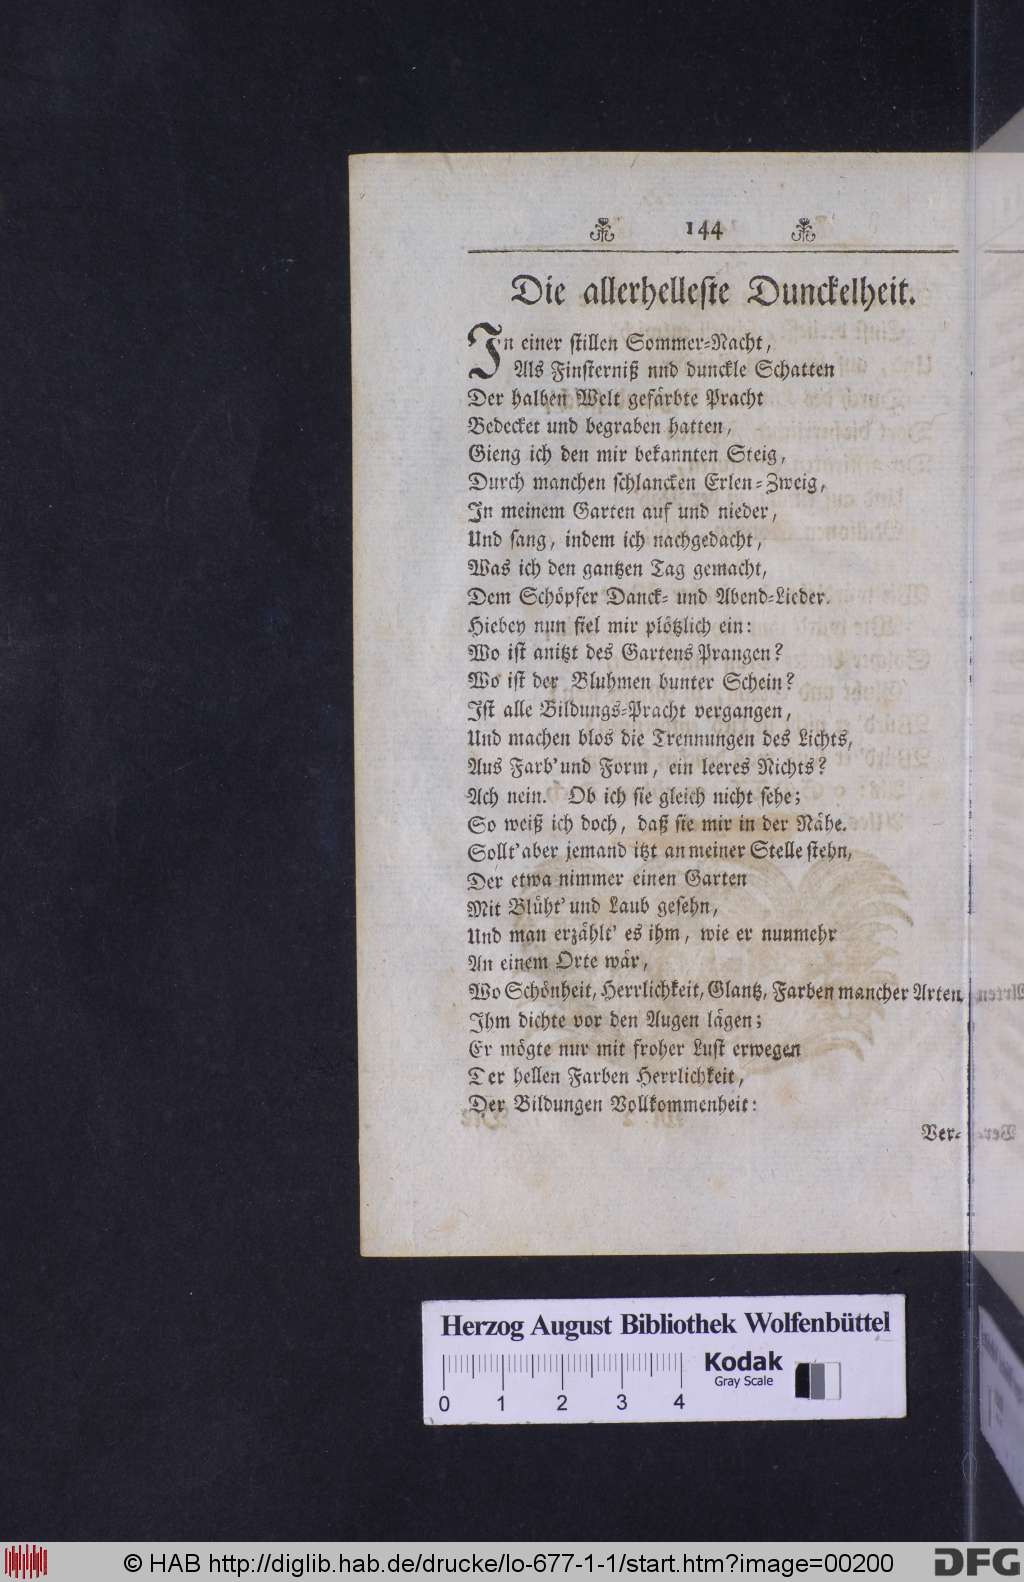 144
Die allerhelleste Dunckelheit.
In einer stillen Sommer-Nacht,
Als Finsterniß nnd dunckle Schatten
Der halben Welt gefärbte Pracht
Bedecket und begraben hatten,
Gieng ich den mir bekannten Steig,
Durch manchen schlancken Erlen-Zweig,
In meinem Garten auf und nieder,
Und sang, indem ich nachgedacht,
Was ich den gantzen Tag gemacht,
Dem Schöpfer Danck- und Abend-Lieder.
Hiebey nun fiel mir plötzlich ein:
Wo ist anitzt des Gartens Prangen?
Wo ist der Bluhmen bunter Schein?
Ist alle Bildungs-Pracht vergangen,
Und machen blos die Trennungen des Lichts,
Aus Farb' und Form, ein leeres Nichts?
Ach nein. Ob ich sie gleich nicht sehe;
So weiß ich doch, daß sie mir in der Nähe.
Sollt' aber jemand itzt an meiner Stelle stehn,
Der etwa nimmer einen Garten
Mit Blüht' und Laub gesehn,
Und man erzählt' es ihm, wie er nunmehr
An einem Orte wär,
Wo Schönheit, Herrlichkeit, Glantz, Farben mancher Arten
Ihm dichte vor den Augen lägen;
Er mögte nur mit froher Lust erwegen
Der hellen Farben Herrlichkeit,
Der Bildungen Vollkommenheit:
Ver-
Herzog August Bibliothek Wolfenbüttel
Kodak
Gray Scale
0 1 2 3 4
© HAB http://diglib.hab.de/drucke/lo-677-1-1/start.htm?image=00200
DFG